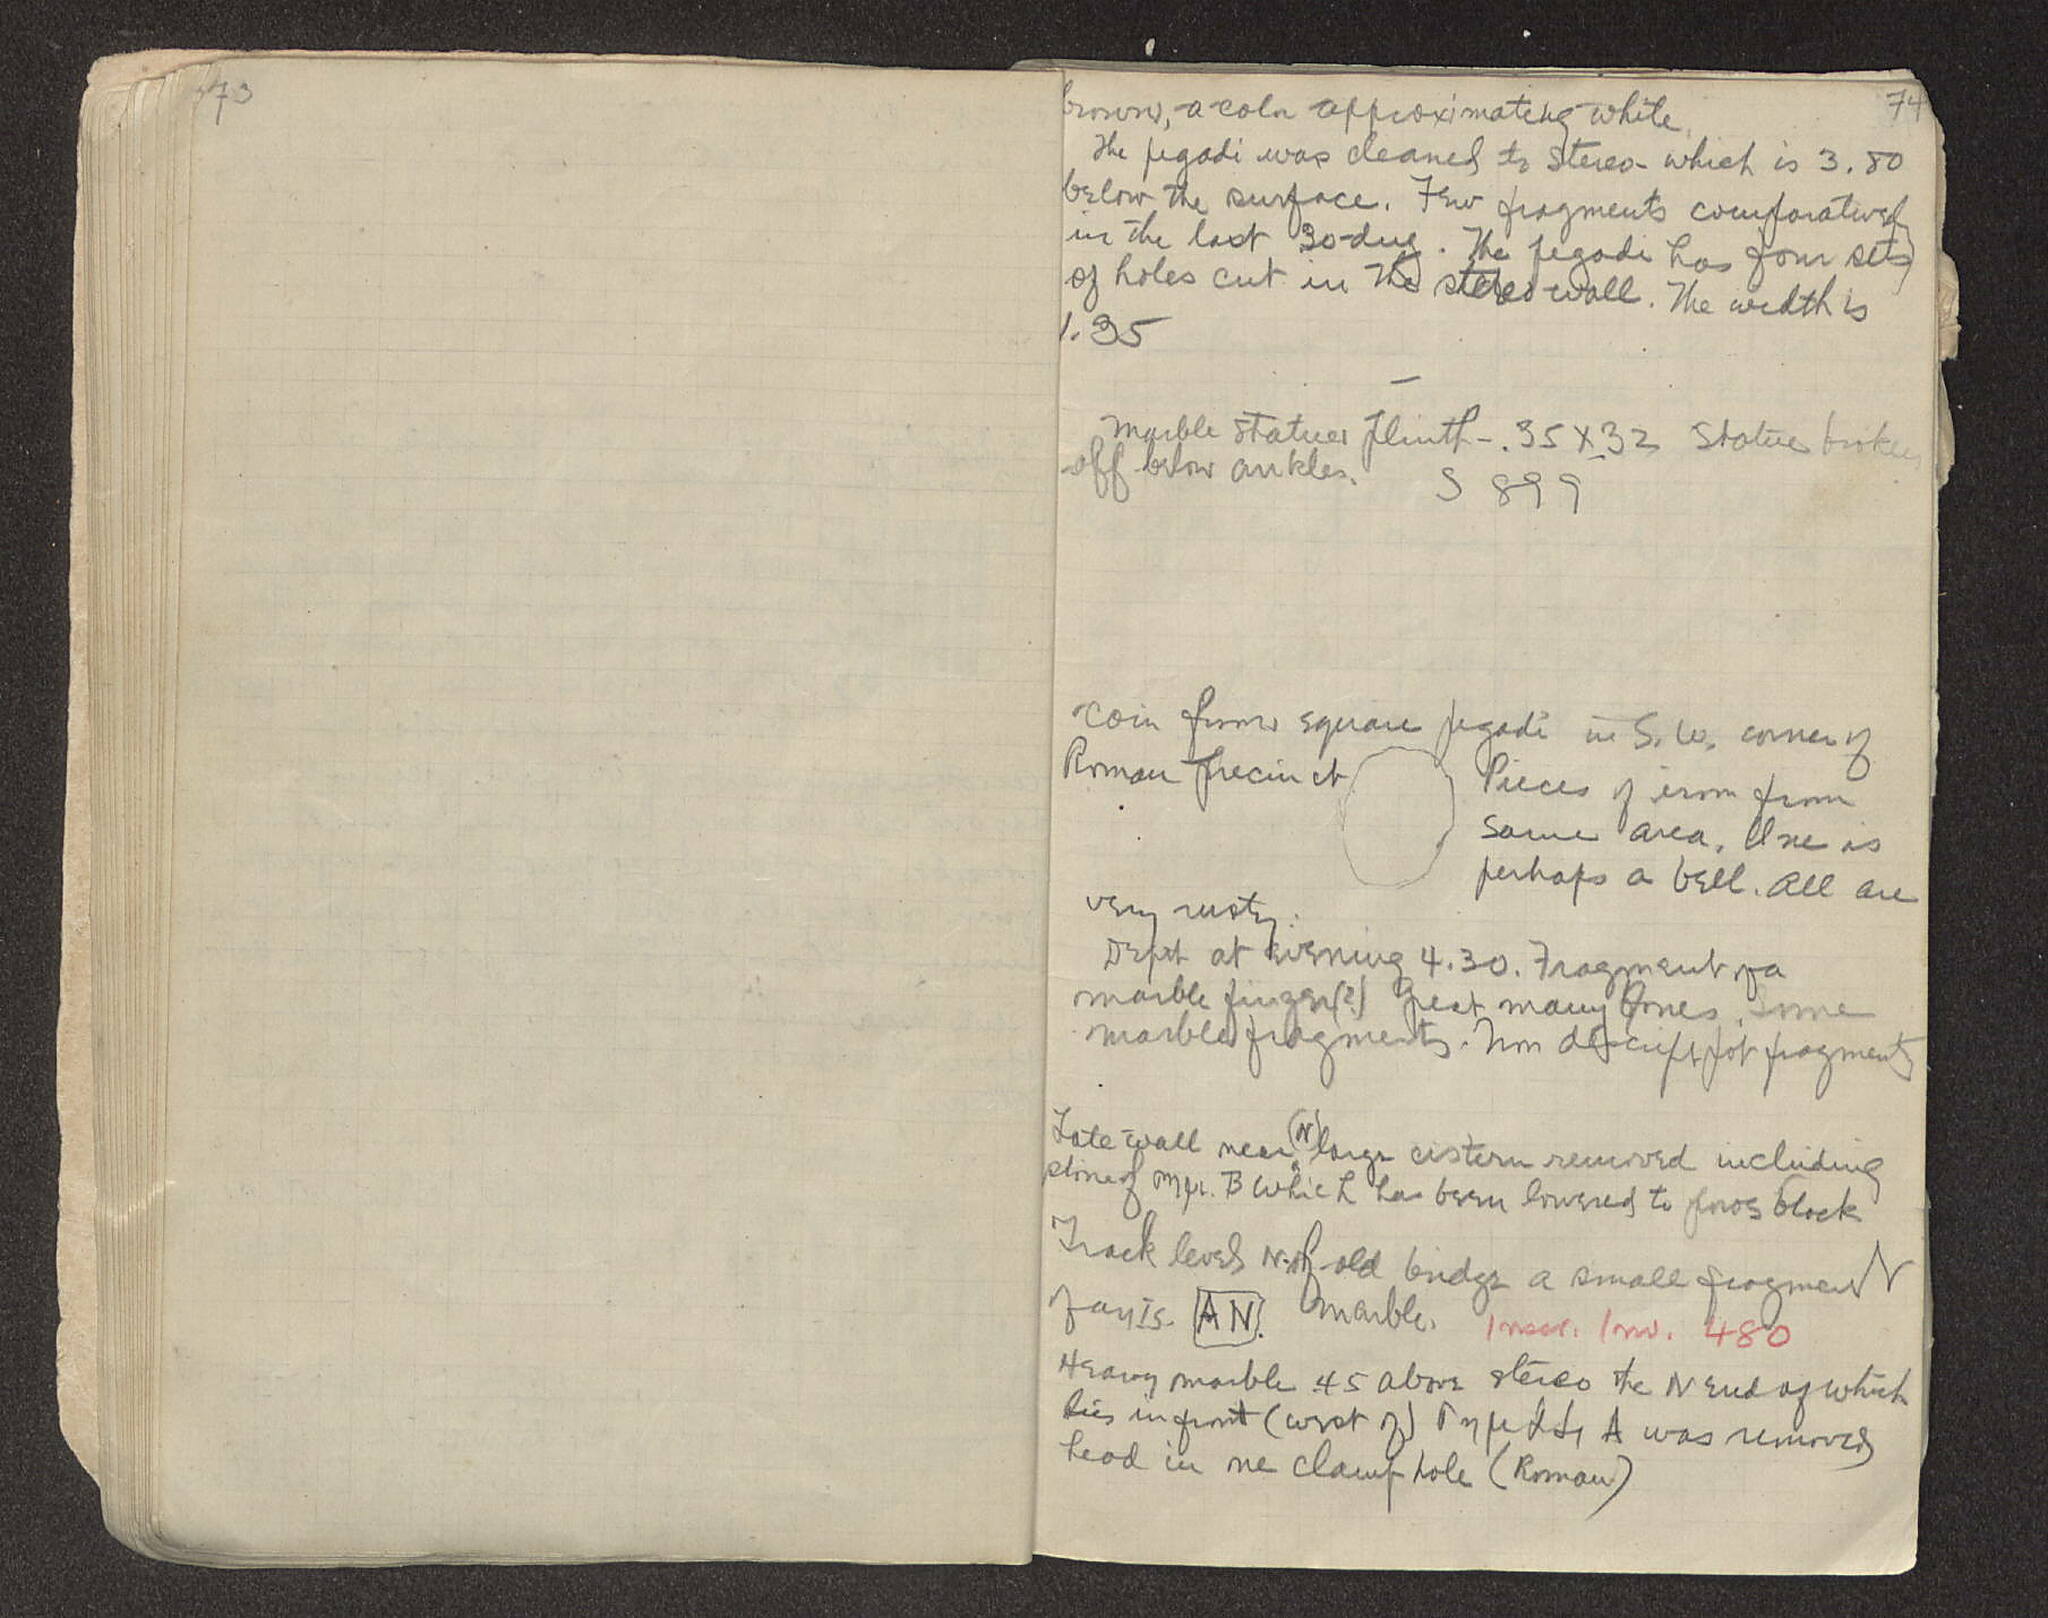 73
74
brown, a color approximating white.
The pegadi was cleaned to stereo - which is 3.80
below the surface. Few fragments comparatively
in the last 30 dug. The pegadi has four sets
of holes cut in the stereo wall. The width is
1.35
Marble statue plinth - .35 x 32 Statue broken
off below ankles.
S 899
Coin from square pegadi in S.W. corner of
Roman precinct
Pieces of iron from
same area. One is
perhaps a bell. All are
very rusty.
Dept at evening 4.30. Fragment of a
marble finger(?) Great many bones. Some
marble fragments. Non descript pot fragments
Late wall near (N) large cistern removed including
stone of B which has been lowered to poros block
Track level N. of old bridge a small fragment
of an IS. AN. Marble.
Inscr. Inv. 480
Heavy marble .45 above stereo the N end of which
lies in front (west of) A was removed
lead in one clamp hole (Roman)